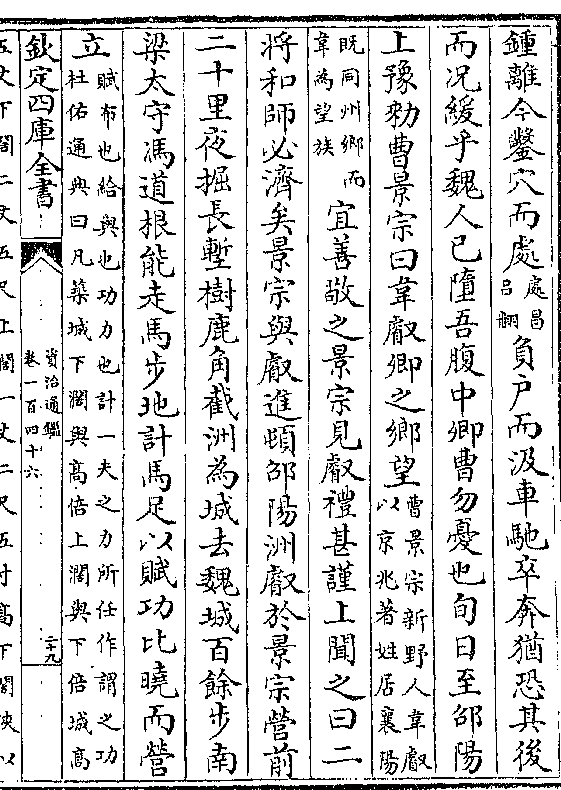 鍾離今鑿穴而處處昌呂翻負户而汲車馳卒奔猶恐其後
而况緩乎魏人已墮吾腹中卿曹勿憂也旬日至邵陽
上豫勑曹景宗曰韋叡卿之鄉望曹景宗新野人韋叡以京兆著姓居襄陽
既同州鄉而韋為望族宜善敬之景宗見叡禮甚謹上聞之曰二
將和師必濟矣景宗與叡進頓邵陽洲叡於景宗營前
二十里夜掘長塹樹鹿角截洲為城去魏城百餘步南
梁太守馮道根能走馬步地計馬足以賦功比曉而營
立賦布也給與也功力也計一夫之力所任作謂之功杜佑通典曰凡築城下濶與高倍上濶與下倍城高
欽定四庫全書
資治通鑑
卷一百四十六
二十九
五丈下闊二丈五尺上闊一丈二尺五寸高下闊狹以